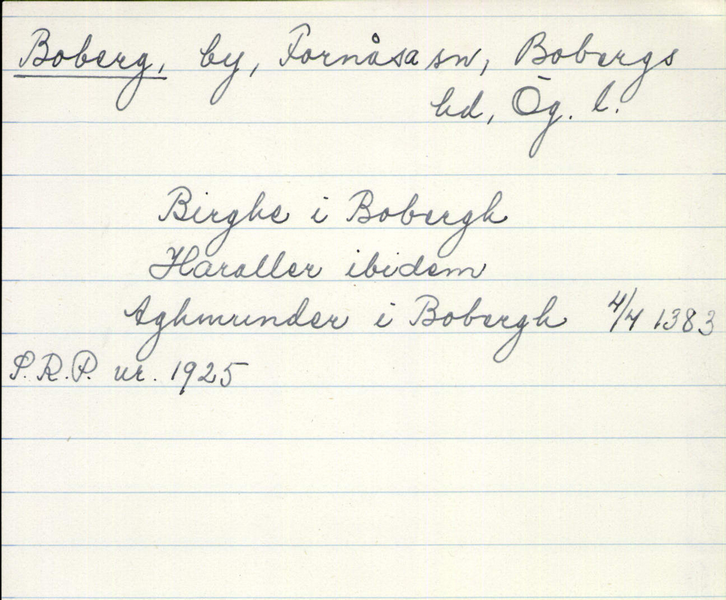 Boberg, by, Fornåsa sn, Bobergs
hd, Ög. l.
Birghe i Bobergh
Haraller ibidem
Aghmunder i Bobergh 4/4 1383
S.R.P. nr. 1925